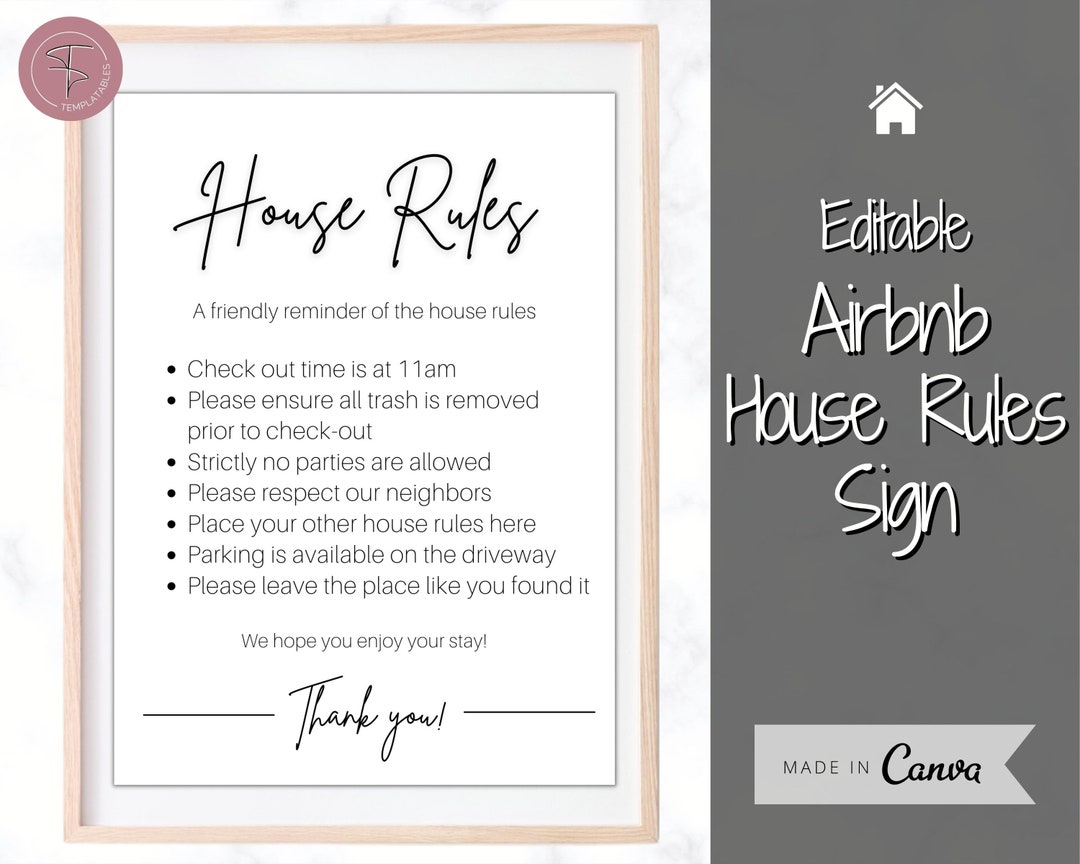 TEMPLATABLES
House Rules
A friendly reminder of the house rules
• Check out time is at 11am
• Please ensure all trash is removed
prior to check-out
• Strictly no parties are allowed
• Please respect our neighbors
• Place your other house rules here
• Parking is available on the driveway
• Please leave the place like you found it
We hope you enjoy your stay!
Thank you!
Editable
Airbnb
House Rules
Sign
MADE IN Canva